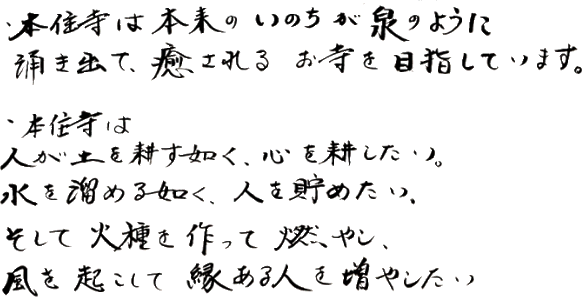 ・本住寺は本来のいのちが泉のように
涌き出て、癒される お寺を目指しています。
・本住寺は
人が土を耕す如く、心を耕したい。
水を溜める如く、人を貯めたい、
そして 火種を作って 燃やし、
風を起こして 縁ある人を増やしたい